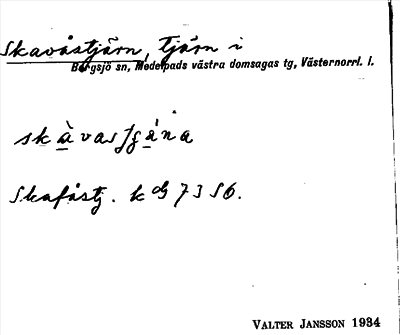 Skavåstjärn, tjärn i
Borgsjö sn, Medelpads västra domsagas tg, Västernorrl. l.
Skafåstj. k
VALTER JANSSON 1934